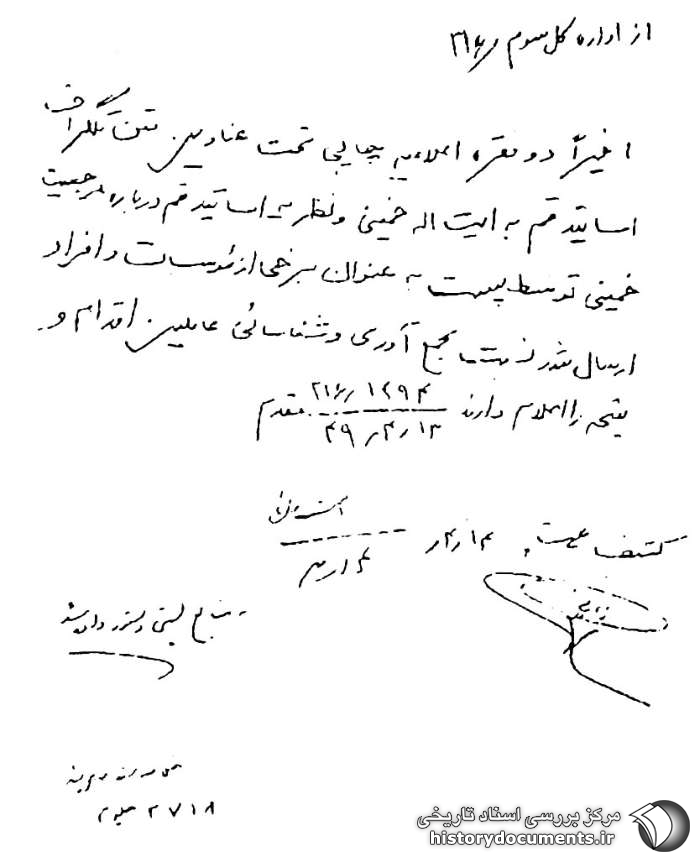 از اداره کل سوم ۳۱۶
اخیراً دو فقره اعلامیه چاپی تحت عناوین متن تلگراف
اساتید قم به ایت اله خمینی و نظریه اساتید قم درباره مرجعیت
خمینی توسط پست به عنوان برخی از موسسات و افراد
ارسال شده نسبت جمع آوری و شناسائی عاملین اقدام و
نتیجه را اعلام دارند ۳۱۶/۱۲۹۴
۴۹/۴/۱۳ مقدم
کشف است ۱۴/۴
منابع لیستی دستور داده شد
۲۷۱۸
مرکز بررسی اسناد تاریخی
historydocuments.ir